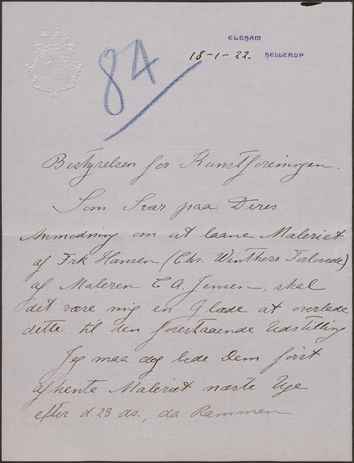 ELEHAM
HELLERUP
18-1-22.
84
Bestyrelsen for Kunstforeningen.
Som Svar paa Deres
Anmodning om at laane Maleriet
af Frk Hansen (Chr. Winthers Forlovede)
af Maleren C A. Jensen, skal
det være mig en Glæde at overlade
dette til den forestaaende Udstilling
Jeg maa dog bede Dem først
afhente Maleriet næste Uge
efter d 23 ds, da Rammen